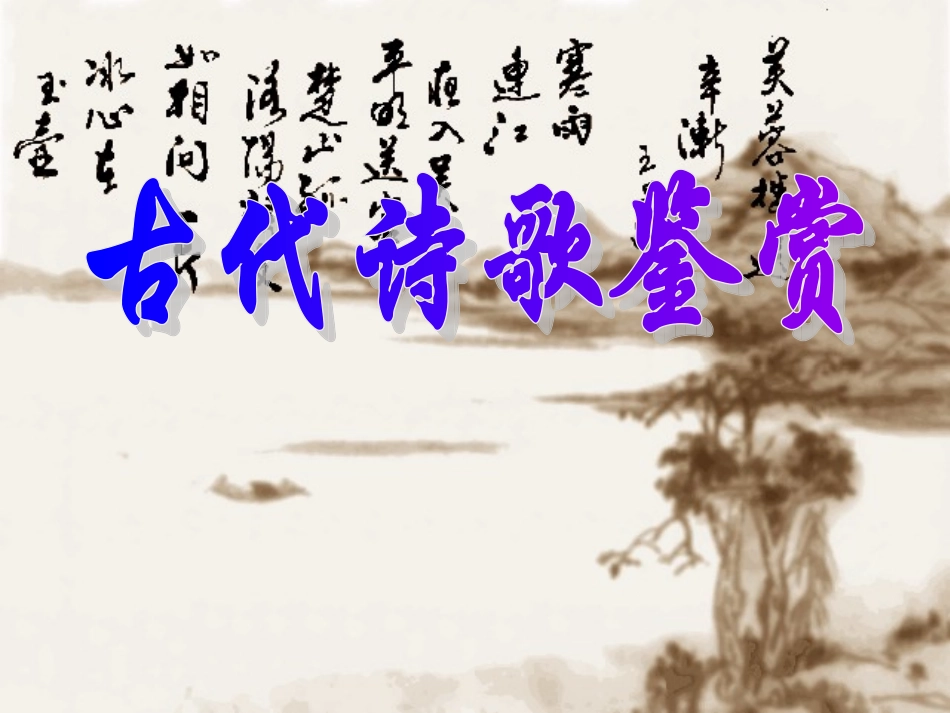 芙蓉楼
辛漸
王
寒雨
連江
夜入吴
平明送客
楚山孤
洛陽
如相问一片
冰心在
玉壶
古代诗歌鉴赏